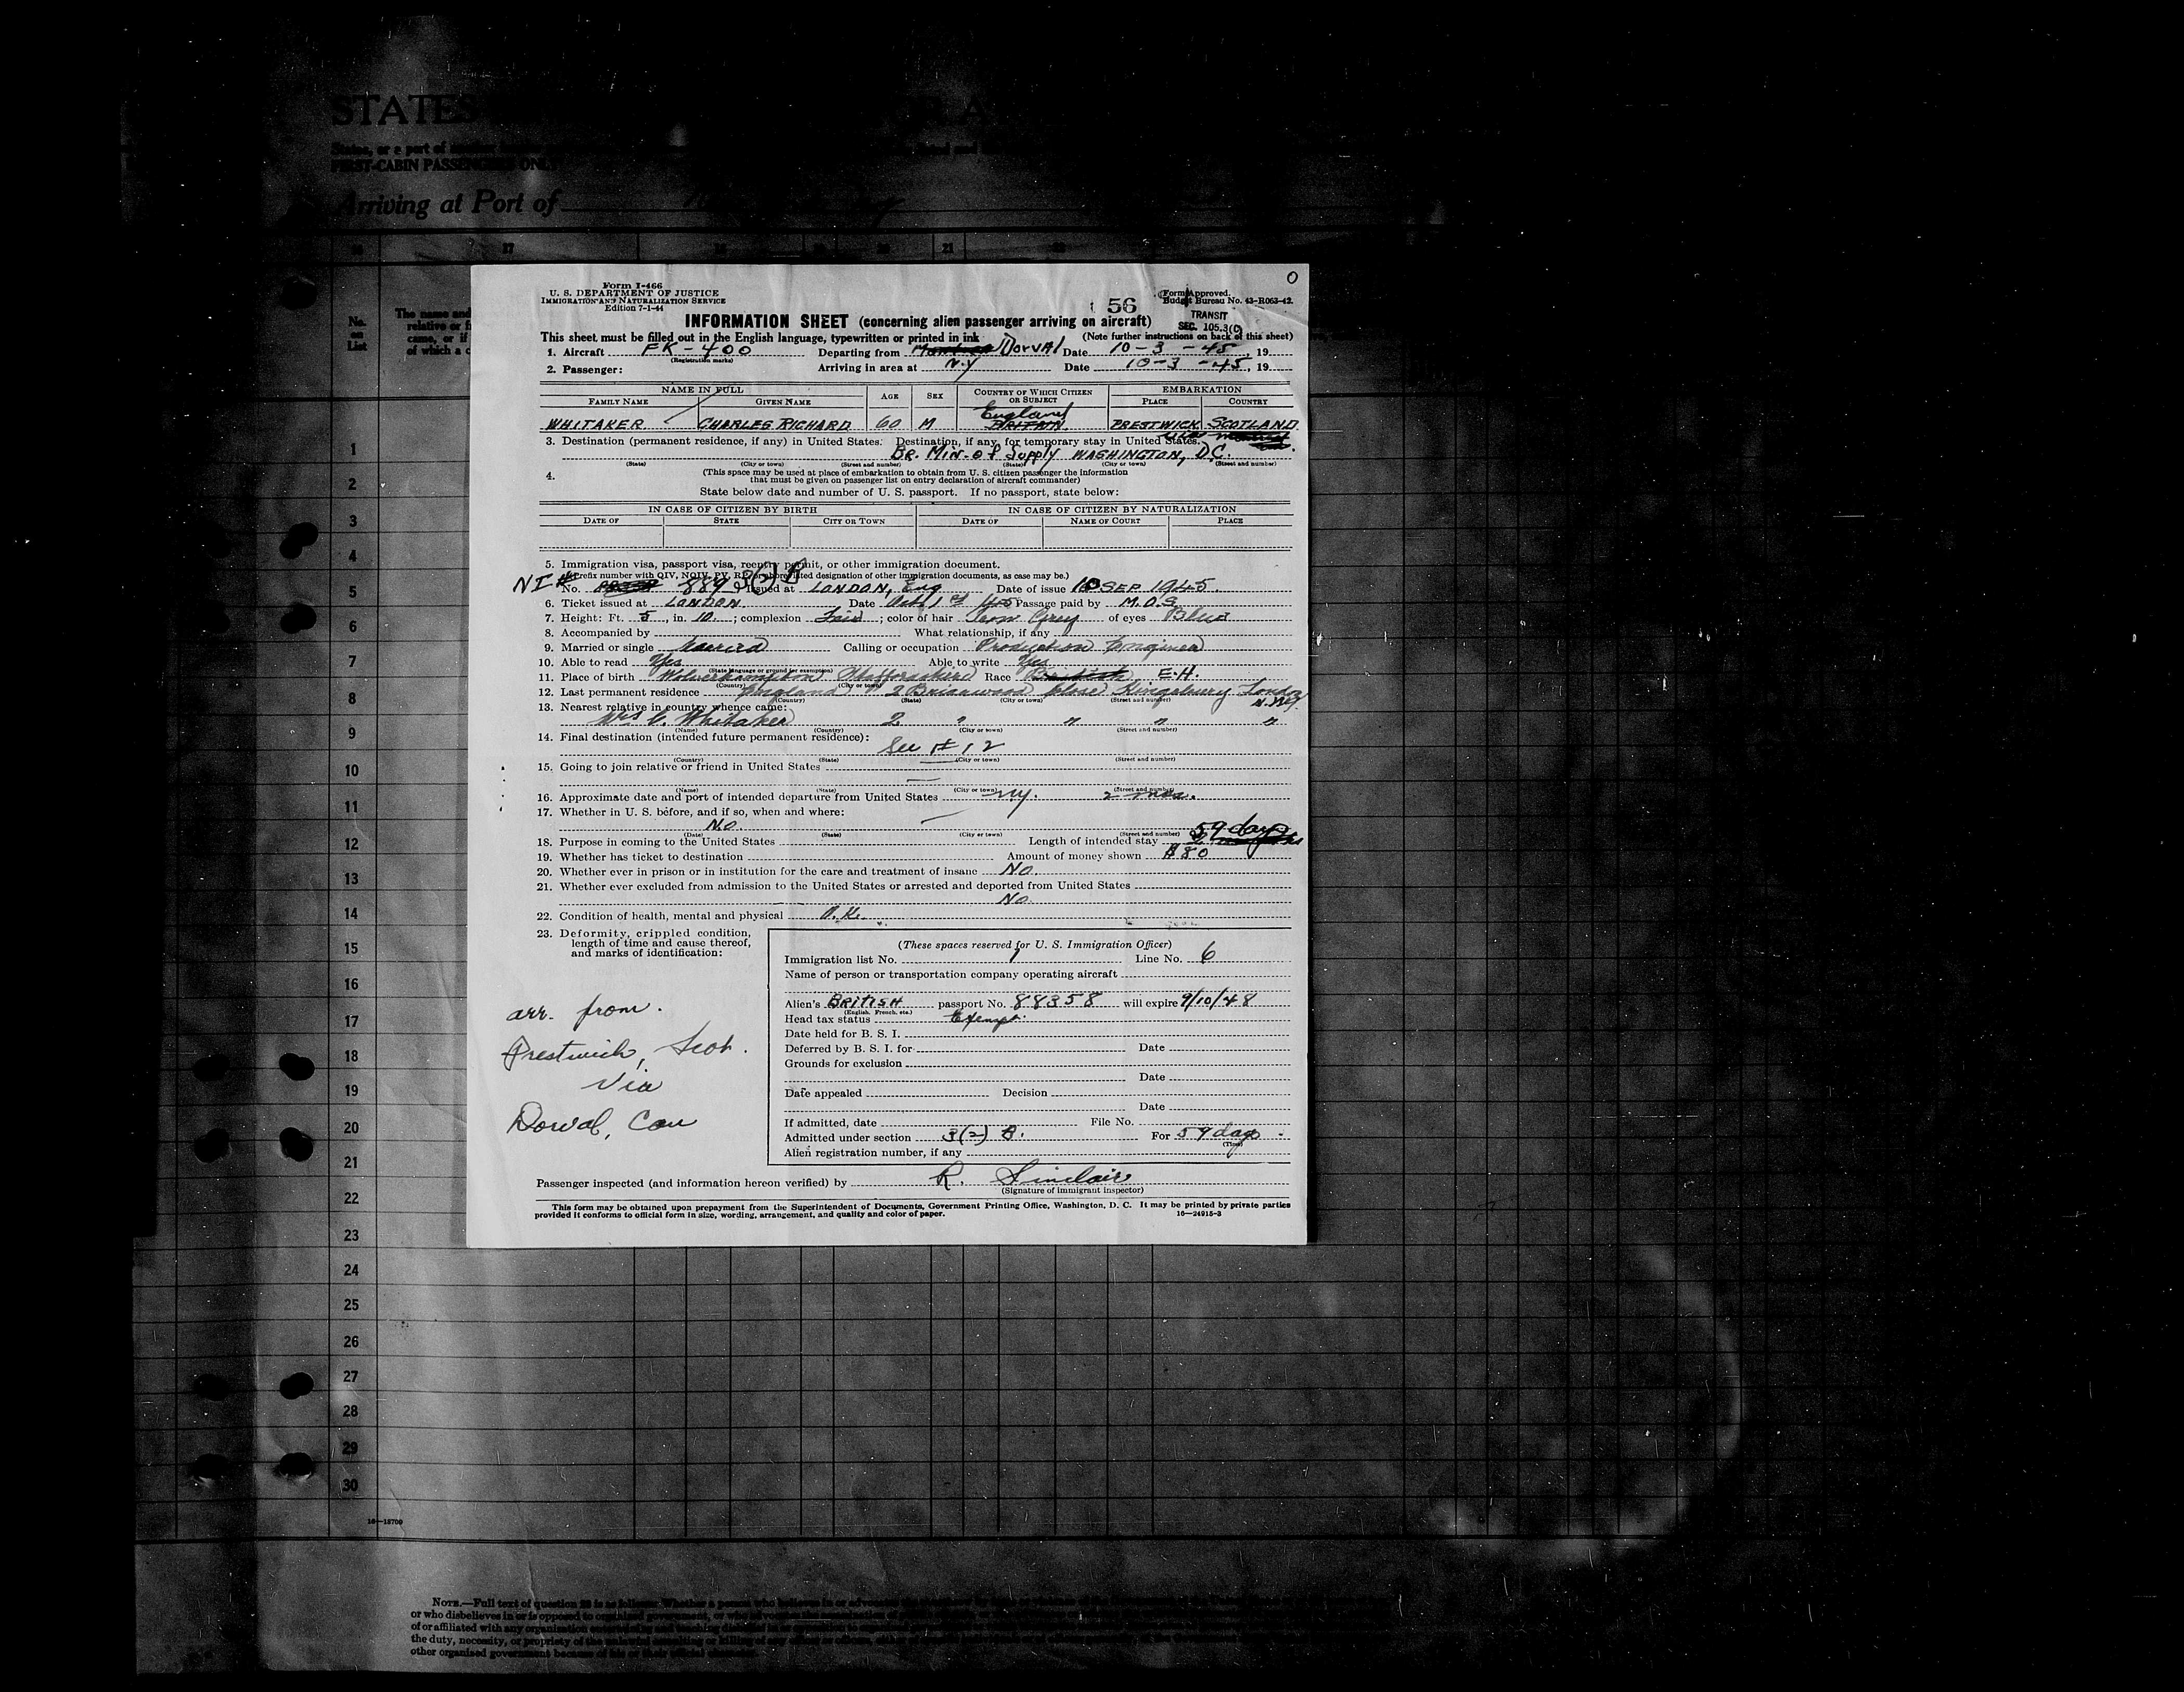 STATES
States, or a part of
FIRST-CABIN PASSENGERS ONLY
Arriving at Port of
17
21
No. on List
The name and
relative or f
came, or if
of which a c
O
Form I-466
U. S. DEPARTMENT OF JUSTICE
IMMIGRATION AND NATURALIZATION SERVICE
Edition 7-1-44
56
Form Approved.
Budget Bureau No. 43-R063-42.
TRANSIT
SEC. 105.3(c)
INFORMATION SHEET (concerning alien passenger arriving on aircraft)
This sheet must be filled out in the English language, typewritten or printed in ink
(Note further instructions on back of this sheet)
1. Aircraft FK-400 Departing from Dorval Date 10-3-45, 19
(Registration marks)
2. Passenger: Arriving in area at N.Y Date 10-3-45, 19
NAME IN FULL
FAMILY NAME GIVEN NAME AGE SEX COUNTRY OF WHICH CITIZEN OR SUBJECT EMBARKATION PLACE COUNTRY
England
WHITAKER CHARLES RICHARD 60 M BRITAIN PRESTWICK SCOTLAND
3. Destination (permanent residence, if any) in United States. Destination, if any, for temporary stay in United States.
BR. MIN. of Supply WASHINGTON, D.C.
(State) (City or town) (Street and number) (State) (City or town) (Street and number)
4. (This space may be used at place of embarkation to obtain from U. S. citizen passenger the information
that must be given on passenger list on entry declaration of aircraft commander)
State below date and number of U. S. passport. If no passport, state below:
IN CASE OF CITIZEN BY BIRTH IN CASE OF CITIZEN BY NATURALIZATION
DATE OF STATE CITY OR TOWN DATE OF NAME OF COURT PLACE
5. Immigration visa, passport visa, reentry permit, or other immigration document.
(Prefix number with QIV, NQIV, PV, RP, or abbreviated designation of other immigration documents, as case may be.)
3(2) B
NI# No. 889 Issued at LONDON, Eng Date of issue 10 SEP 1945.
6. Ticket issued at LONDON. Date Oct 1st 45 Passage paid by M.O.S.
7. Height: Ft. 5, in. 10; complexion Fair; color of hair Iron Grey of eyes Blue
8. Accompanied by What relationship, if any
9. Married or single Married Calling or occupation Production Engineer
10. Able to read Yes Able to write Yes
(State language or ground for exemption)
11. Place of birth Wolverhampton Staffordshire Race British E.H.
(Country) (City or town)
12. Last permanent residence England 2 Briarwood Close Kingsbury London N.W.9.
(Country) (State) (City or town) (Street and number)
13. Nearest relative in country whence came:
Mrs C. Whitaker 2 " " " "
(Name) (Country) (City or town) (Street and number)
14. Final destination (intended future permanent residence):
See # 12
(Country) (State) (City or town) (Street and number)
15. Going to join relative or friend in United States
(Name) (State) (City or town) (Street and number)
16. Approximate date and port of intended departure from United States NY. 2 mos.
17. Whether in U. S. before, and if so, when and where:
No
(Date) (State) (City or town) (Street and number)
59 days
18. Purpose in coming to the United States Length of intended stay
19. Whether has ticket to destination Amount of money shown $80
20. Whether ever in prison or in institution for the care and treatment of insane No.
21. Whether ever excluded from admission to the United States or arrested and deported from United States
No
22. Condition of health, mental and physical O.K.
23. Deformity, crippled condition,
length of time and cause thereof,
and marks of identification:
arr. from.
Prestwick, Scot.
via
Dorval, Can
(These spaces reserved for U. S. Immigration Officer)
Immigration list No. 1 Line No. 6
Name of person or transportation company operating aircraft
Alien's BRITISH passport No. 88358 will expire 9/10/48
(English, French, etc.)
Head tax status Exempt.
Date held for B. S. I.
Deferred by B. S. I. for Date
Grounds for exclusion
Date
Date appealed Decision
Date
If admitted, date File No.
Admitted under section 3(2) B. For 59 days.
(Time)
Alien registration number, if any
Passenger inspected (and information hereon verified) by R. Sinclair
(Signature of immigrant inspector)
This form may be obtained upon prepayment from the Superintendent of Documents, Government Printing Office, Washington, D. C. It may be printed by private parties
provided it conforms to official form in size, wording, arrangement, and quality and color of paper. 16—24915-3
1
2
3
4
5
6
7
8
9
10
11
12
13
14
15
16
17
18
19
20
21
22
23
24
25
26
27
28
29
30
16—18700
NOTE.—Full text of question is as follows: Whether a person who believes in or
or who disbelieves in or is opposed to organized government, or who
of or affiliated with any organization
the duty, necessity, or propriety of the
other organised government because of his or their official character.